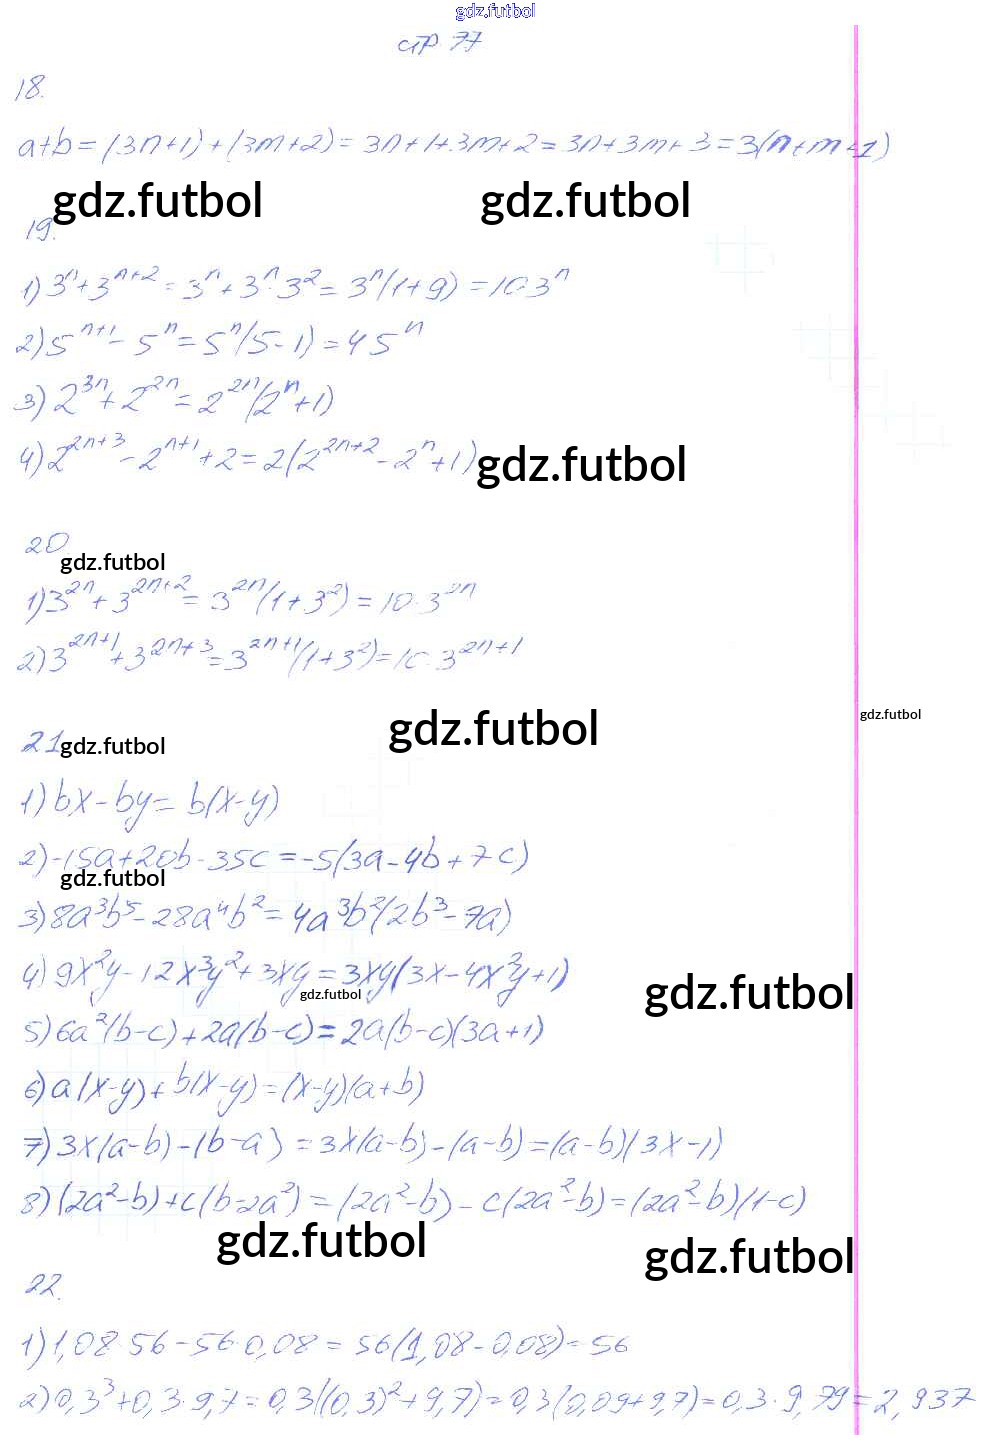 gdz.futbol
стр. 77
18.
a+b = (3n+1)+(3m+2) = 3n+1+3m+2 = 3n+3m+3 = 3(n+m+1)
gdz.futbol gdz.futbol
19.
1) 3ⁿ+3ⁿ⁺² = 3ⁿ+3ⁿ·3² = 3ⁿ(1+9) = 10·3ⁿ
2) 5ⁿ⁺¹ - 5ⁿ = 5ⁿ(5-1) = 4·5ⁿ
3) 2³ⁿ+2²ⁿ = 2²ⁿ(2ⁿ+1)
4) 2²ⁿ⁺³ - 2ⁿ⁺¹ + 2 = 2(2²ⁿ⁺² - 2ⁿ+1) gdz.futbol
20
gdz.futbol
1) 3²ⁿ+3²ⁿ⁺² = 3²ⁿ(1+3²) = 10·3²ⁿ
2) 3²ⁿ⁺¹+3²ⁿ⁺³ = 3²ⁿ⁺¹(1+3²) = 10·3²ⁿ⁺¹
gdz.futbol
gdz.futbol
21. gdz.futbol
1) bx - by = b(x-y)
2) -15a+20b-35c = -5(3a-4b+7c)
gdz.futbol
3) 8a³b⁵ - 28a⁴b² = 4a³b²(2b³-7a)
4) 9x²y - 12x³y² + 3xy = 3xy(3x-4x²y+1)
gdz.futbol gdz.futbol
5) 6a²(b-c)+2a(b-c) = 2a(b-c)(3a+1)
6) a(x-y)+b(x-y) = (x-y)(a+b)
7) 3x(a-b)-(b-a) = 3x(a-b)-(a-b) = (a-b)(3x-1)
8) (2a²-b)+c(b-2a²) = (2a²-b)-c(2a²-b) = (2a²-b)(1-c)
gdz.futbol gdz.futbol
22.
1) 1,08·56-56·0,08 = 56(1,08-0,08) = 56
2) 0,3³+0,3·9,7 = 0,3((0,3)²+9,7) = 0,3(0,09+9,7) = 0,3·9,79 = 2,937